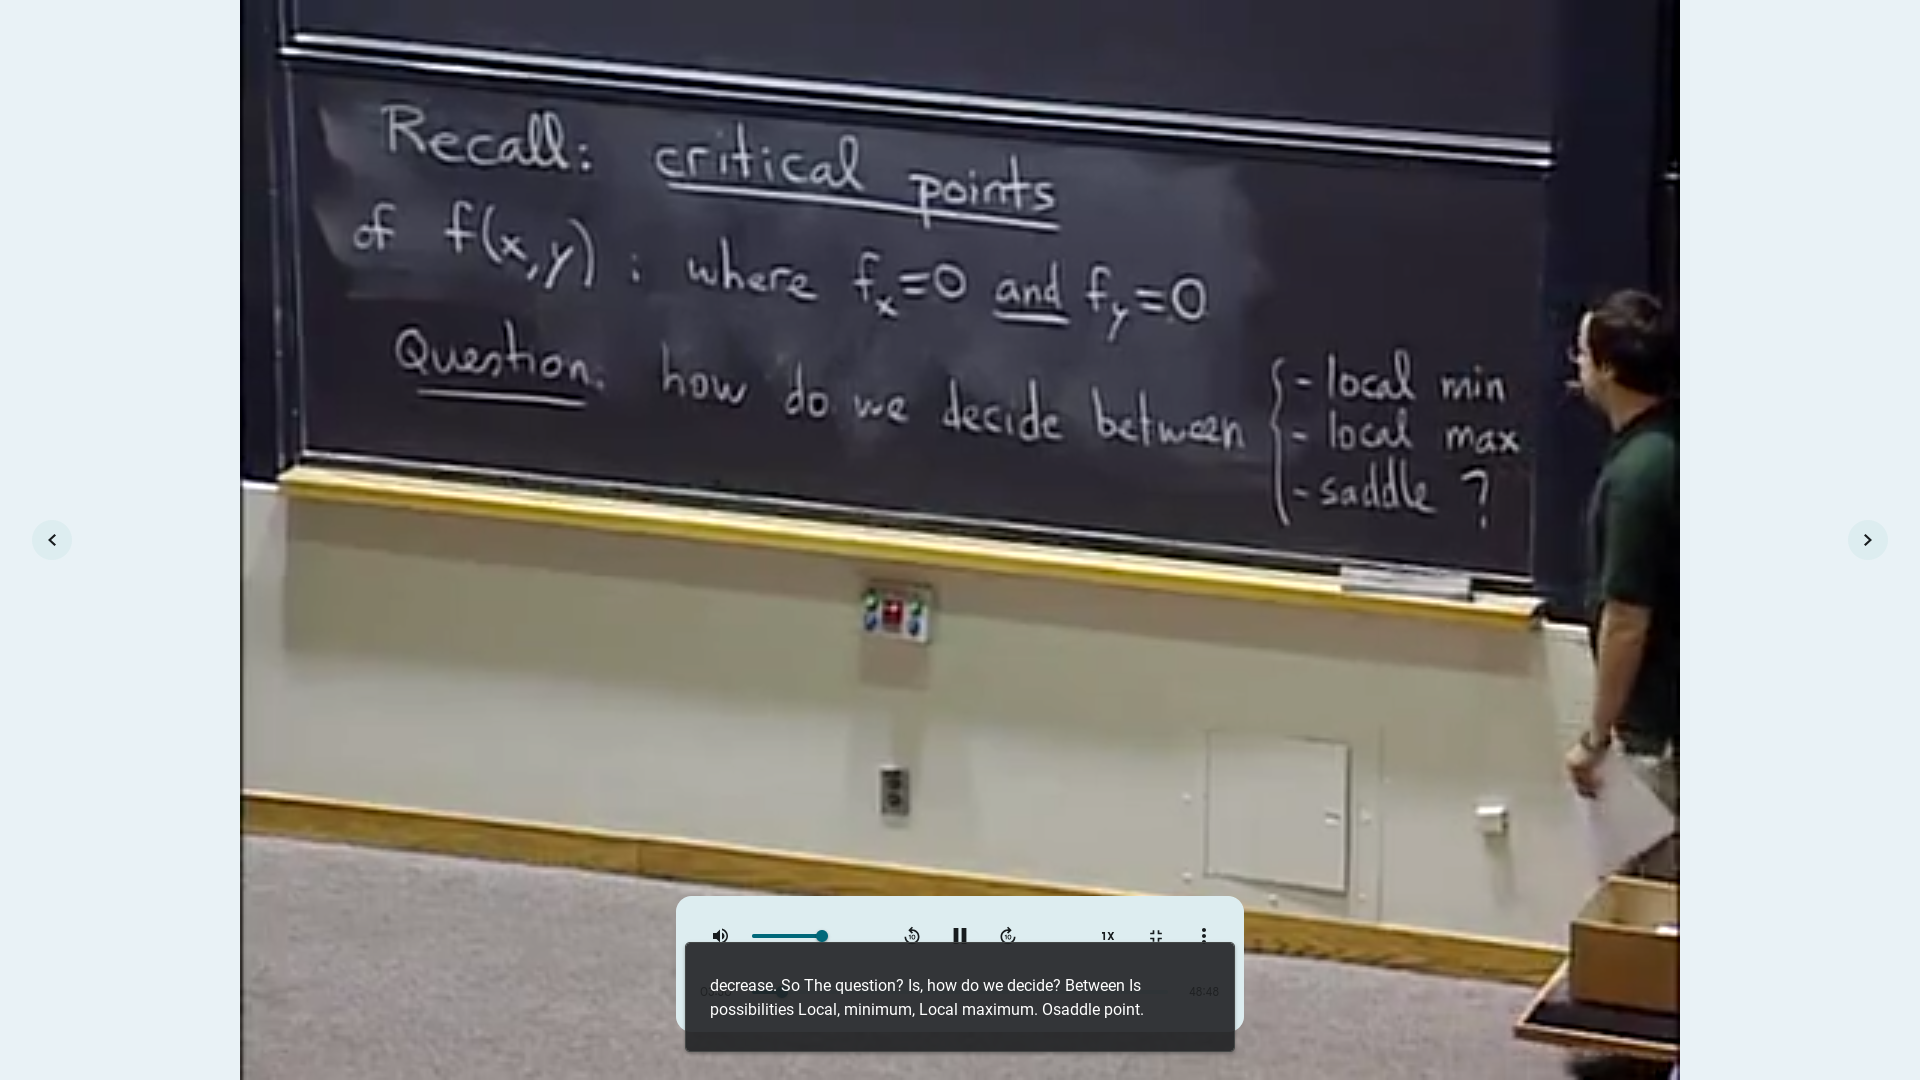 Recall: critical points
of f(x,y) : where f_x=0 and f_y=0
Question: how do we decide between { - local min
- local max
- saddle ?
1X
48:48
decrease. So The question? Is, how do we decide? Between Is
possibilities Local, minimum, Local maximum. Osaddle point.